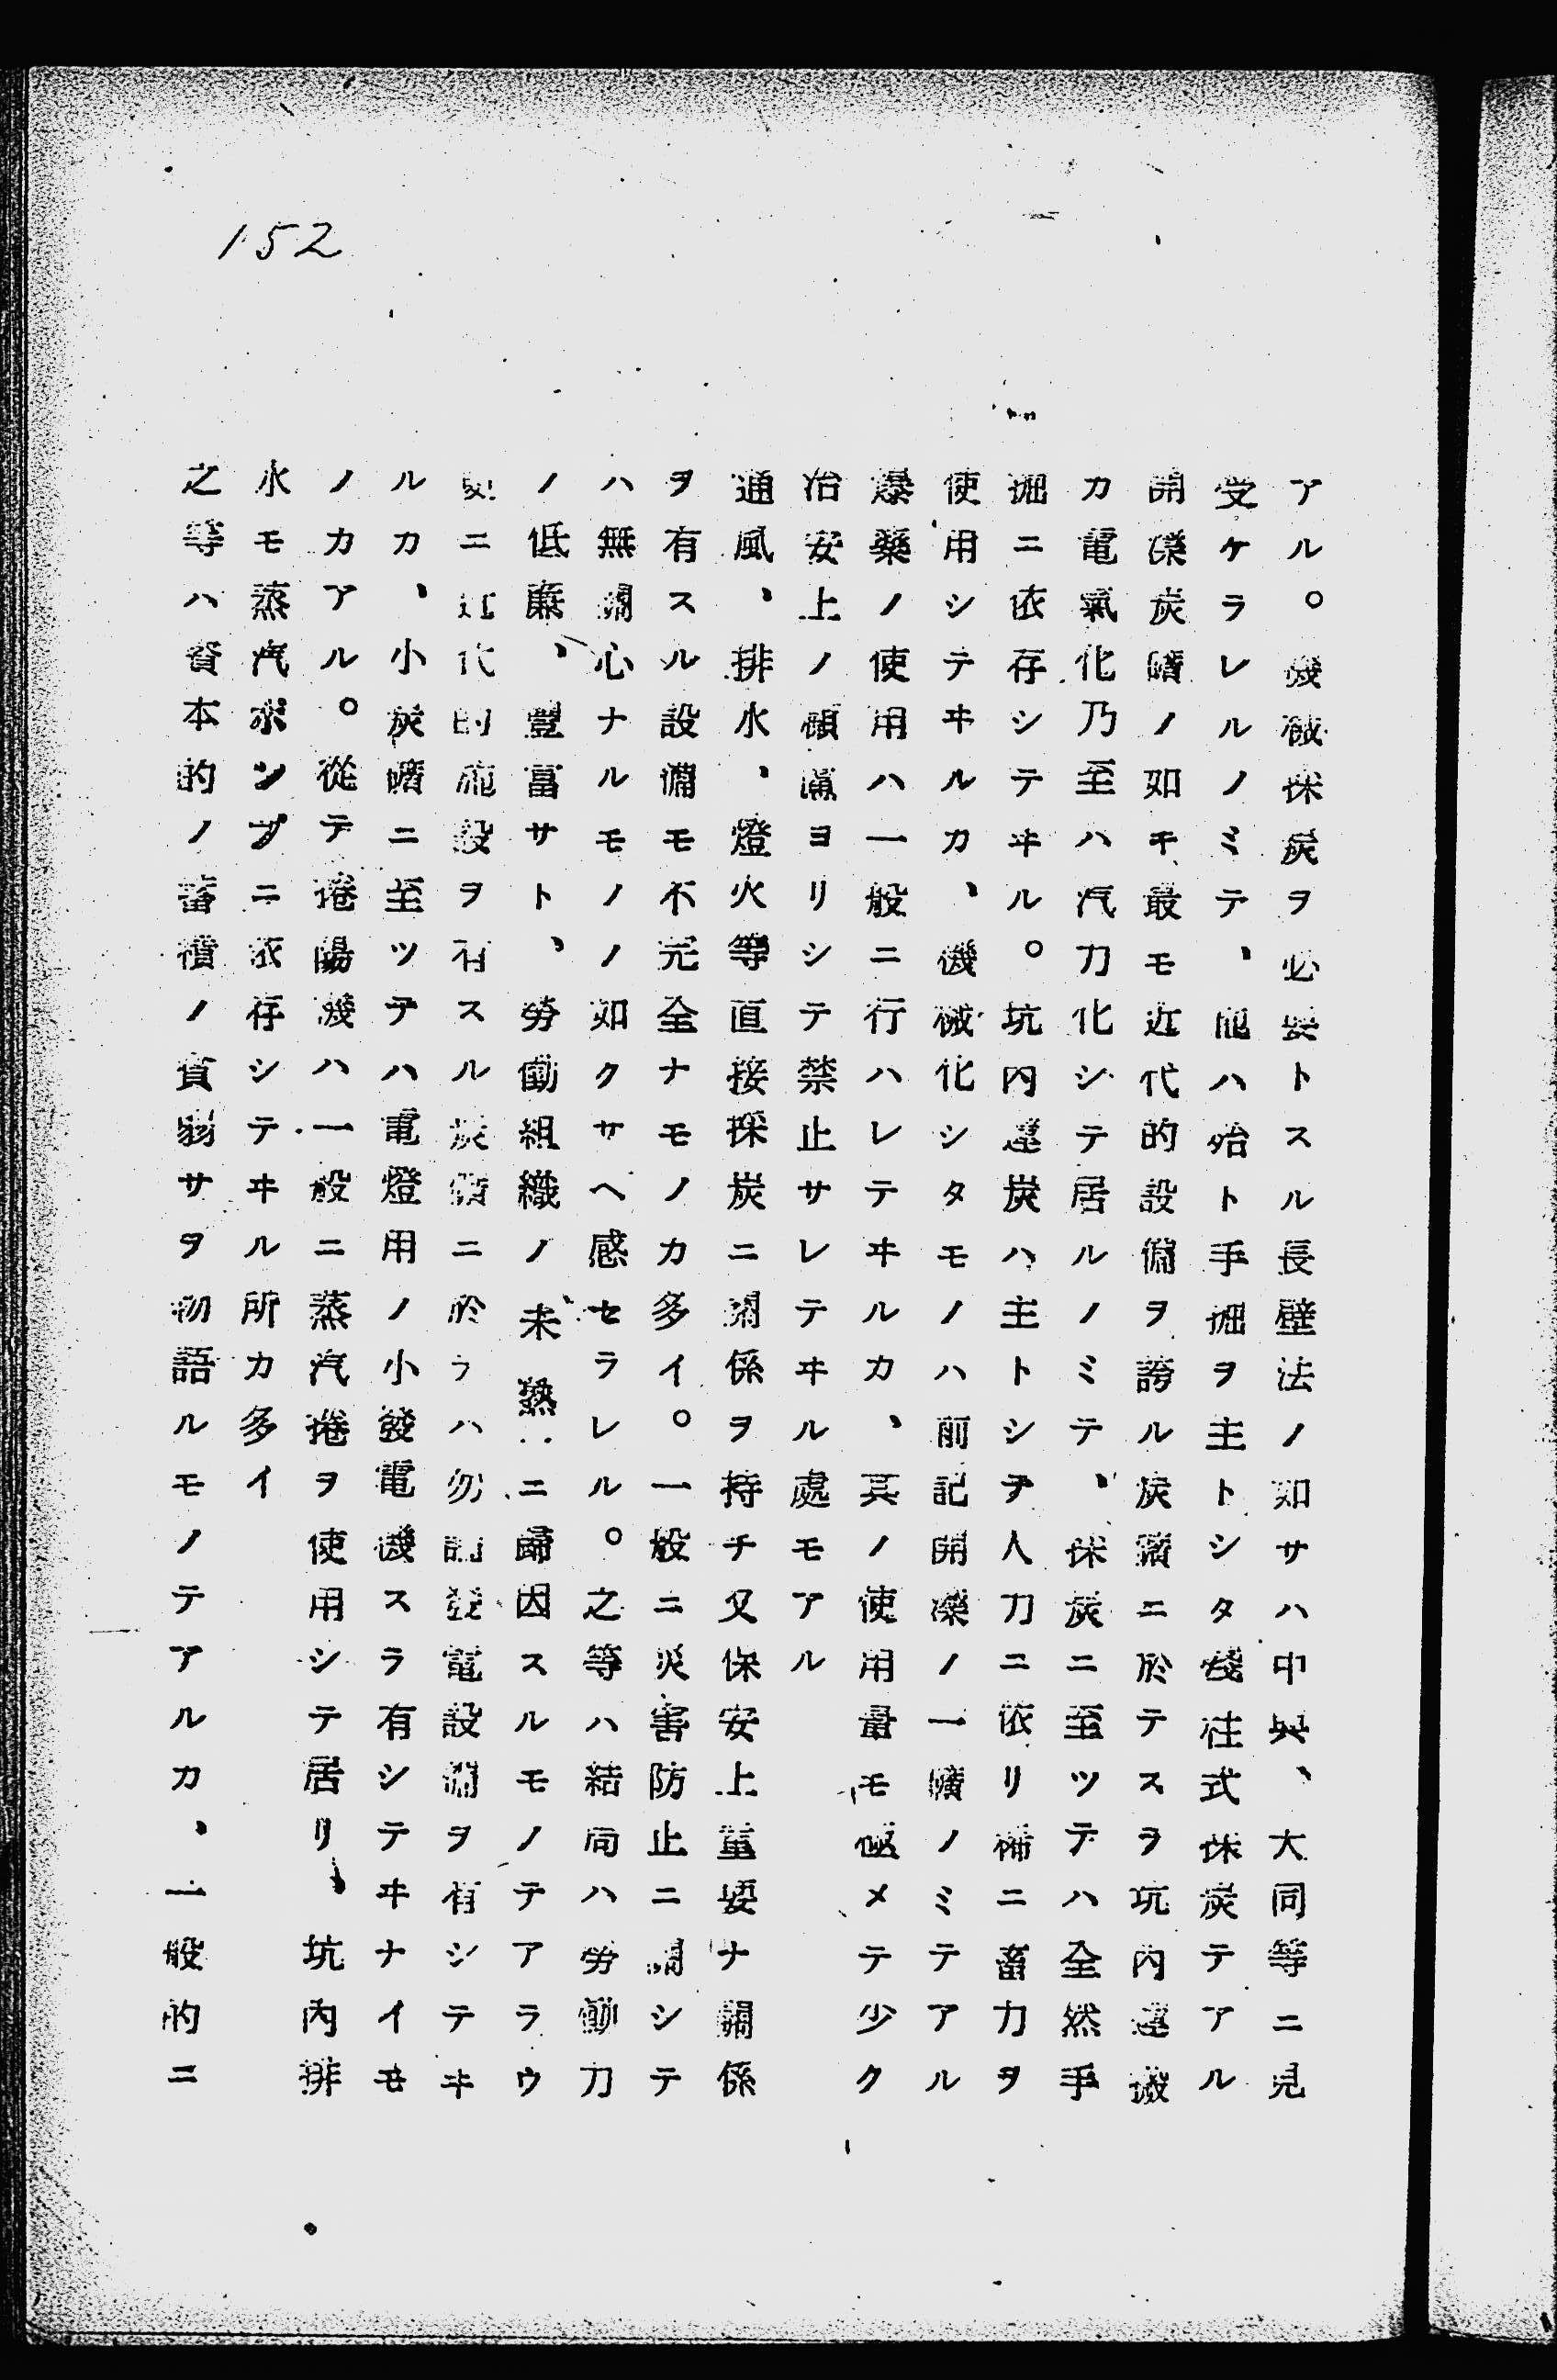 152
アル。機械採炭ヲ必要トスル長壁法ノ如サハ中興、大同等ニ見
受ケラレルノミテ、他ハ殆ト手掘ヲ主トシタ殘柱式採炭テアル
開灤炭礦ノ如キ最モ近代的設備ヲ誇ル炭礦ニ於テスヲ坑内運搬
カ電氣化乃至ハ汽力化シテ居ルノミテ、採炭ニ至ツテハ全然手
掘ニ依存シテヰル。坑内運炭ハ主トシテ人力ニ依リ稀ニ畜力ヲ
使用シテヰルカ、機械化シタモノハ前記開灤ノ一礦ノミテアル
爆藥ノ使用ハ一般ニ行ハレテヰルカ、其ノ使用量モ極メテ少ク
治安上ノ顧慮ヨリシテ禁止サレテヰル處モアル
通風、排水、燈火等直接採炭ニ關係ヲ持チ又保安上重要ナ關係
ヲ有スル設備モ不完全ナモノカ多イ。一般ニ災害防止ニ關シテ
ハ無關心ナルモノノ如クサヘ感セラレル。之等ハ結局ハ勞働力
ノ低廉、豐富サト、勞働組織ノ未熟ニ歸因スルモノテアラウ
更ニ近代的施設ヲ有スル炭礦ニ於ラハ勿論發電設備ヲ有シテヰ
ルカ、小炭礦ニ至ツテハ電燈用ノ小發電機スラ有シテヰナイモ
ノカアル。從テ捲揚機ハ一般ニ蒸汽捲ヲ使用シテ居リ、坑内排
水モ蒸汽ポンプニ依存シテヰル所カ多イ
之等ハ資本的ノ蓄積ノ貧弱サヲ物語ルモノテアルカ、一般的ニ